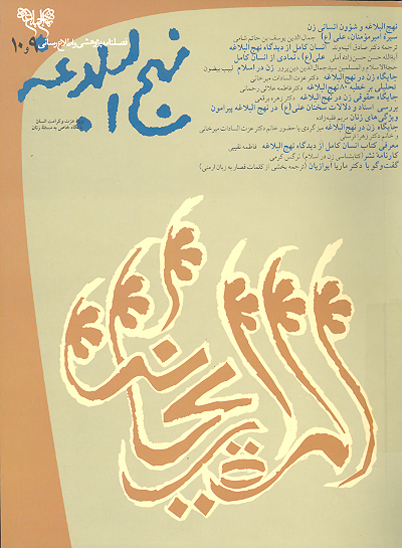 فصلنامه پژوهشی و اطلاع رسانی
۹ و ۱۰
نهج البلاغه
نهج‌البلاغه و شؤون انسانی زن
سیره امیرمؤمنان، علی (ع) جمال الدین یوسف بن حاتم شامی
ترجمه دکتر صادق آئینه‌وند انسان کامل از دیدگاه نهج‌البلاغه
آیةالله حسن حسن زاده آملی علی(ع)، نمادی از انسان کامل
حجةالاسلام والمسلمین سیدجمال‌الدین دین‌پرور زن در اسلام لبیب بیضون
جایگاه زن در نهج‌البلاغه دکتر عزت السادات میرخانی
تحلیلی بر خطبه ۸۰ نهج‌البلاغه دکتر فاطمه علائی رحمانی
جایگاه حقوقی زن در نهج‌البلاغه دکتر زهره
بررسی اسناد و دلالات سخنان علی(ع) در نهج‌البلاغه پیرامون
ویژگی‌های زنان مریم قلیه‌زاده
زن در نهج‌البلاغه میزگردی با حضور خانم دکتر عزت السادات میرخانی
و خانم دکتر زهرا
معرفی کتاب انسان کامل از دیدگاه نهج‌البلاغه فاطمه نقیبی
کارنامه نشر (کتابشناسی زن در اسلام) نرگس کرمی
گفت‌وگو با دکتر ماریا آیوازیان (ترجمه بخشی از کلمات قصار به زبان ارمنی)
عزت و کرامت انسان
نگاه خاص به مسئله زنان